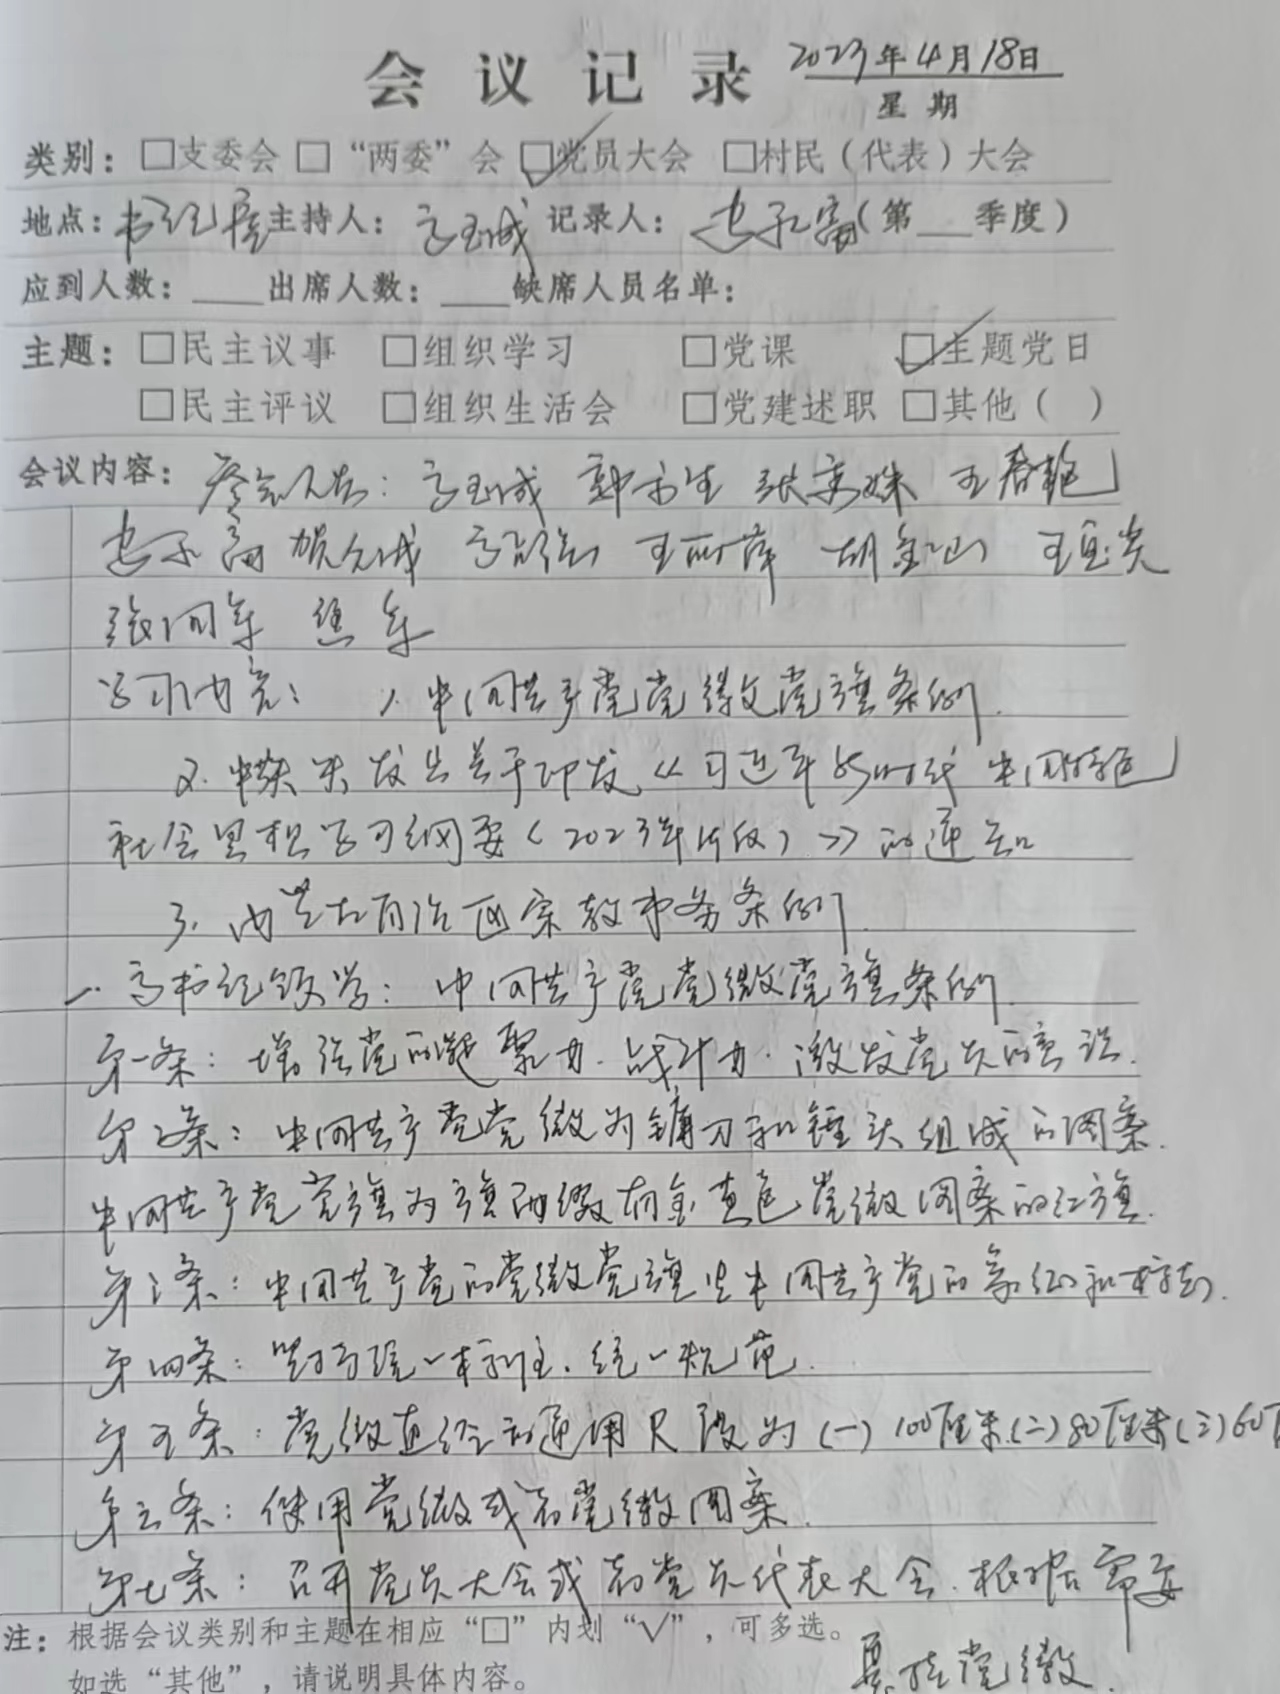 会议记录 2023年4月18日
星期
类别：□支委会 □“两委”会 ☑党员大会 □村民（代表）大会
地点：书记屋 主持人：高玉成 记录人：（第___季度）
应到人数：____出席人数：____缺席人员名单：
主题：□民主议事 □组织学习 □党课 ☑主题党日
□民主评议 □组织生活会 □党建述职 □其他（ ）
会议内容：参会人员：高玉成 王春艳
胡金山
张国军
学习内容：1.中国共产党党徽党旗条例.
2.中央发出关于印发《习近平新时代中国特色
社会思想学习纲要（2023年版）》的通知
3.内蒙古自治区宗教事务条例.
一.高书记领学：中国共产党党徽党旗条例.
第一条：增强党的凝聚力.战斗力.激发党员的意识.
第二条：中国共产党党徽为镰刀和锤头组成的图案.
中国共产党党旗为旗面缀有金黄色党徽图案的红旗.
第三条：中国共产党的党徽党旗是中国共产党的象征和标志.
第四条：统一标准.统一规范.
第五条：党徽直径的通用尺度为(一)100厘米.(二)80厘米(三)60厘
第六条：使用党徽或者党徽图案.
第七条：召开党员大会或者党员代表大会.根据需要
悬挂党徽.
注：根据会议类别和主题在相应“□”内划“√”，可多选。
如选“其他”，请说明具体内容。